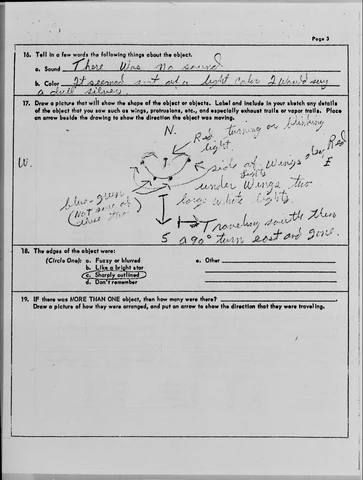 Page 3
16. Tell in a few words the following things about the object.
a. Sound There was no sound
b. Color It seemed sort of a light color I would say
a dull silver.
17. Draw a picture that will show the shape of the object or objects. Label and include in your sketch any details
of the object that you saw such as wings, protrusions, etc., and especially exhaust trails or vapor trails. Place
an arrow beside the drawing to show the direction the object was moving.
N.
Red turning or blinking
light.
W.
side of wings also Red
lights
E
under wings two
large white lights
blue-green
(Not sure of
these two)
S
Traveling south then
a 90° turn east and gone.
18. The edges of the object were:
(Circle One): a. Fuzzy or blurred
e. Other
b. Like a bright star
c. Sharply outlined
d. Don't remember
19. IF there was MORE THAN ONE object, then how many were there?
Draw a picture of how they were arranged, and put an arrow to show the direction that they were traveling.